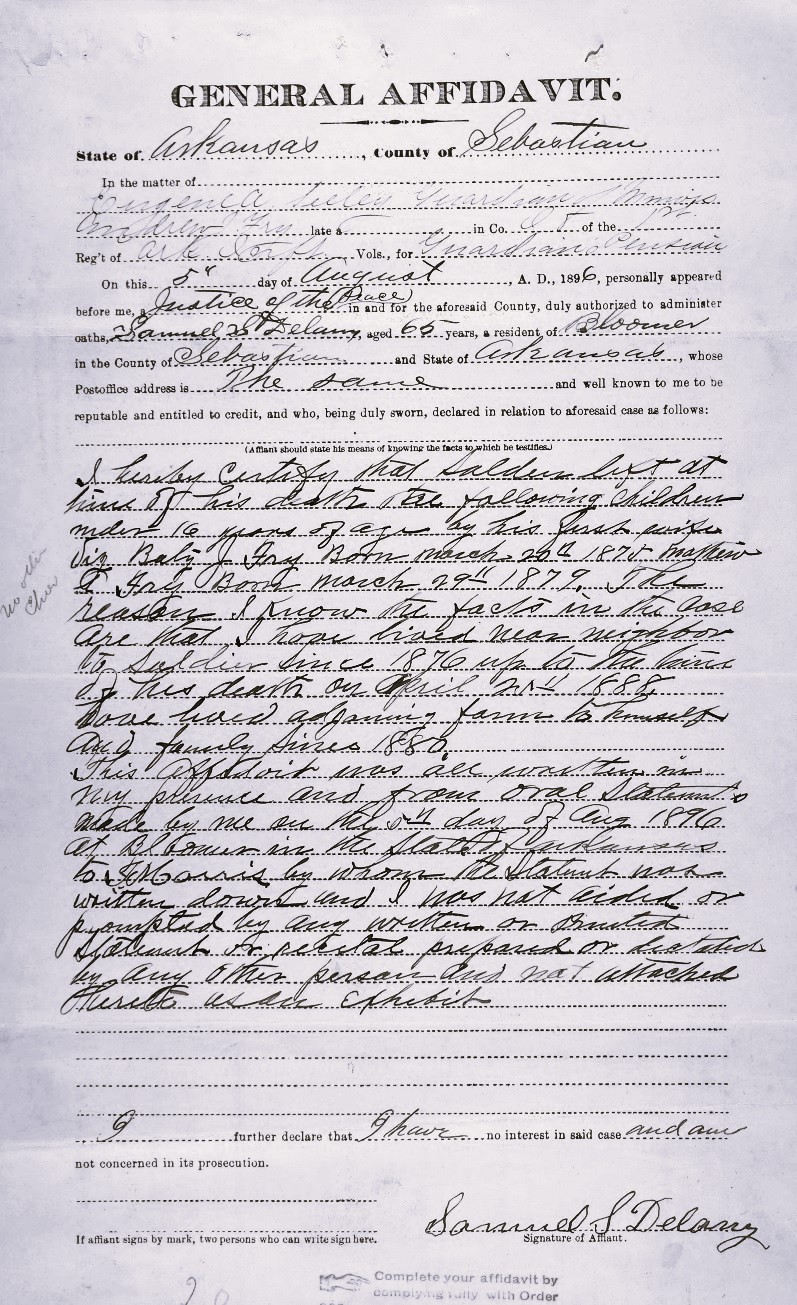 GENERAL AFFIDAVIT.
State of Arkansas, County of Sebastian
In the matter of
Eugenia Seeley Guardian of Minors
Andrew Fry late a in Co. of the 1st
Reg't of Ark , Vols., for Guardians Pension
On this 5" day of August, A. D., 1896, personally appeared
before me, a Justice of the Peace in and for the aforesaid County, duly authorized to administer
oaths, Samuel S Delany, aged 65 years, a resident of Bloomer
in the County of Sebastian and State of Arkansas, whose
Postoffice address is The same and well known to me to be
reputable and entitled to credit, and who, being duly sworn, declared in relation to aforesaid case as follows:
(Affiant should state his means of knowing the facts to which be testifies.)
I hereby certify that Soldier left at
time of his death the following children
under 16 years of age by his first wife
Viz J Fry Born march 187 Mathew
Fry Born march 29th 1879. The
reason I know the facts in the case
are that I have lived near neighbor
to Soldier since 1876 up to the time
of his death on April 1888
have lived adjoining farm to himself
and family since 1880
This Affidavit was all written in
my presence and from oral Statements
made by me on the 5th day of Aug 1896
at Bloomer in the State of Arkansas
to Morris by whom the Statement was
written down and I was not aided or
prompted by any written or Printed
Statement or recital prepared or dictated
by any other person and not attached
hereto as an Exhibit
I further declare that I have no interest in said case and am
not concerned in its prosecution.
Samuel S Delany
If affiant signs by mark, two persons who can write sign here.
Signature of Affiant.
Complete your affidavit by
complying fully with Order